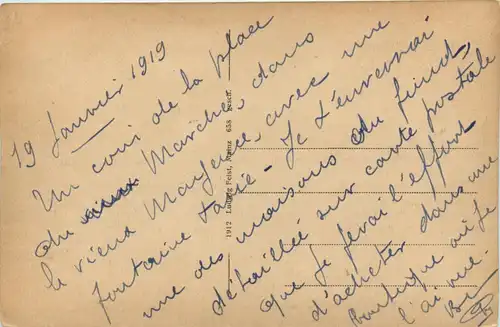 19 Janvier 1919
Un coin de la place
du vieux Marché, dans
le vieux Mayence, avec une
fontaine . Je t'enverrai
une des maisons du fond,
détaillée sur carte postale
que je ferai l'effort
d'acheter dans une
boutique où je
l'ai vue.
1912 Ludwig Feist, Mainz 658 gesch.